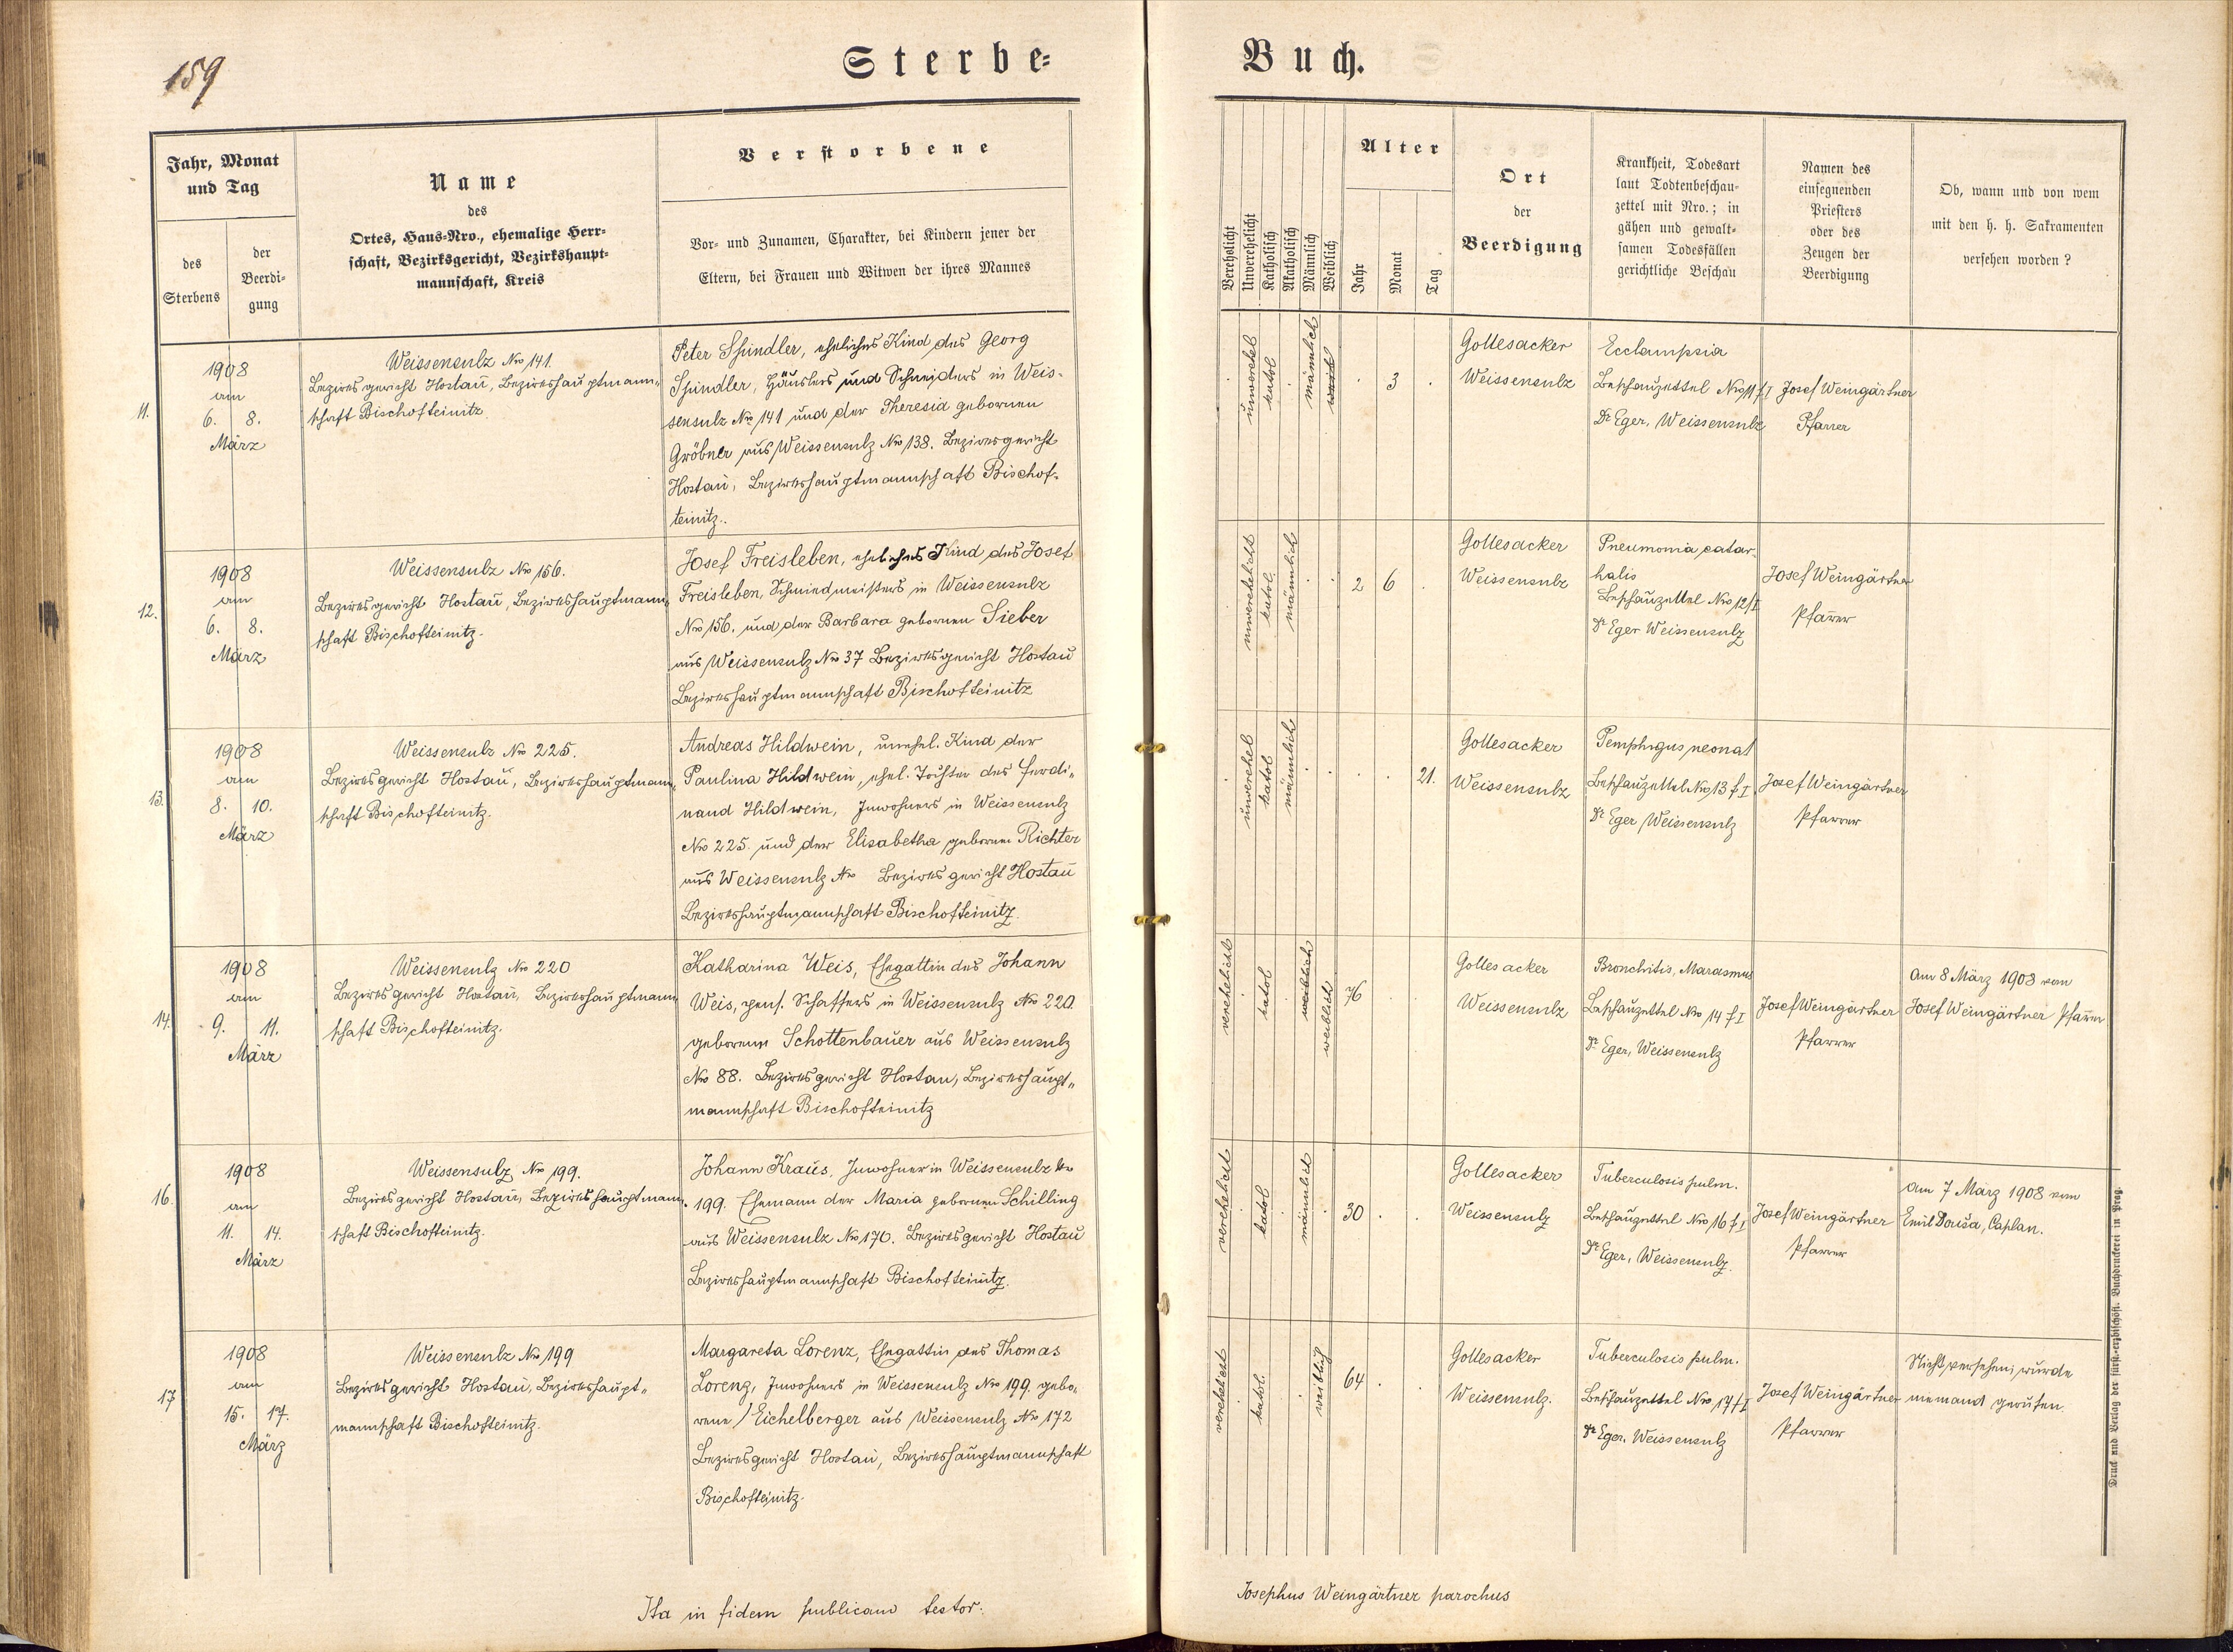 159
Sterbe-
Buch.
Jahr, Monat
und Tag
des
Sterbens
der
Beerdi-
gung
Name
des
Ortes, Haus-Nro., ehemalige Herr-
schaft, Bezirksgericht, Bezirkshaupt-
mannschaft, Kreis
Verstorbene
Vor- und Zunamen, Charakter, bei Kindern jener der
Eltern, bei Frauen und Witwen der ihres Mannes
Verehelicht
Unverehelicht
Katholisch
Akatholisch
Männlich
Weiblich
Alter
Jahr
Monat
Tag
Ort
der
Beerdigung
Krankheit, Todesart
laut Todtenbeschau-
zettel mit Nro.; in
gähen und gewalt-
samen Todesfällen
gerichtliche Beschau
Namen des
einsegnenden
Priesters
oder des
Zeugen der
Beerdigung
Ob, wann und von wem
mit den h. h. Sakramenten
versehen worden?
11.
1908
am
6. 8.
März
Weissensulz Nro 141.
Bezirksgericht Hostau, Bezirkshauptmann-
schaft Bischofteinitz
Peter Spindler, eheliches Kind des Georg
Spindler, Häuslers und Schneiders in Weis-
sensulz Nro 141 und der Theresia gebornen
Gröbner aus Weissensulz Nro 138. Bezirksgericht
Hostau, Bezirkshauptmannschaft Bischof-
teinitz.
katol
männlich
3
Gottesacker
Weissensulz
Ecclampsia
Beschauzettel Nro 11 f I
Dr Eger, Weissensulz
Josef Weingärtner
Pfarrer
12.
1908
am
6. 8.
März
Weissensulz Nro 156.
Bezirksgericht Hostau, Bezirkshauptmann-
schaft Bischofteinitz.
Josef Freisleben, eheliches Kind des Josef
Freisleben, Schmiedmeisters in Weissensulz
Nro 156. und der Barbara gebornen Sieber
aus Weissensulz Nro 37 Bezirksgericht Hostau
Bezirkshauptmannschaft Bischofteinitz
unverehelicht
katol.
männlich
2 6
Gottesacker
Weissensulz
Pneumonia catar-
halis
Beschauzettel Nro 12/I
Dr Eger Weissensulz
Josef Weingärtner
Pfarrer
13.
1908
am
8. 10.
März
Weissensulz Nro 225.
Bezirksgericht Hostau, Bezirkshauptmann-
schaft Bischofteinitz.
Andreas Hildwein, unehel. Kind der
Paulina Hildwein, ehel. Tochter des Ferdi-
nand Hildwein, Inwohners in Weissensulz
Nro 225. und der Elisabetha gebornen Richter
aus Weissensulz Nro Bezirksgericht Hostau
Bezirkshauptmannschaft Bischofteinitz.
unverehel
katol
männlich
21.
Gottesacker
Weissensulz
Pemphigus neonat
Beschauzettel Nro 13 f I
Dr Eger Weissensulz
Josef Weingärtner
Pfarrer
14.
1908
am
9. 11.
März
Weissensulz Nro 220
Bezirksgericht Hostau, Bezirkshauptmann
schaft Bischofteinitz.
Katharina Weis, Ehegattin des Johann
Weis, pens. Schaffers in Weissensulz Nro 220.
geborene Schottenbauer aus Weissensulz
Nro 88. Bezirksgericht Hostau, Bezirkshaupt-
mannschaft Bischofteinitz
verehelicht
katol
weiblich
weiblich
76
Gottesacker
Weissensulz
Bronchitis, Marasmus
Beschauzettel Nro 14 f I
Dr Eger, Weissensulz
Josef Weingärtner
Pfarrer
Am 8 März 1908 von
Josef Weingärtner Pfarrer
16.
1908
am
11. 14.
März
Weissensulz Nro 199.
Bezirksgericht Hostau, Bezirkshauptmann-
schaft Bischofteinitz.
Johann Kraus, Inwohner in Weissensulz Nro
199. Ehemann der Maria gebornen Schilling
aus Weissensulz Nro 170. Bezirksgericht Hostau
Bezirkshauptmannschaft Bischofteinitz.
verehelicht
katol
männlich
30
Gottesacker
Weissensulz
Tuberculosis pulm.
Beschauzettel Nro 16 f I
Dr Eger, Weissensulz.
Josef Weingärtner
Pfarrer
Am 7 März 1908 von
Emil Douša, Caplan.
17
1908
am
15. 17.
März
Weissensulz Nro 199
Bezirksgericht Hostau, Bezirkshaupt-
mannschaft Bischofteinitz.
Margareta Lorenz, Ehegattin des Thomas
Lorenz, Inwohners in Weissensulz Nro 199. gebo-
rene Eichelberger aus Weissensulz Nro 172
Bezirksgericht Hostau, Bezirkshauptmannschaft
Bischofteinitz.
verehelicht
katol.
weiblich
64
Gottesacker
Weissensulz.
Tuberculosis pulm.
Beschauzettel Nro 17 f I
Dr Eger, Weissensulz
Josef Weingärtner
Pfarrer
Nicht versehen, wurde
niemand gerufen.
Ita in fidem publicam testor:
Josephus Weingärtner parochus
Druck und Verlag der fürst.-erzbischöfl. Buchdruckerei in Prag.